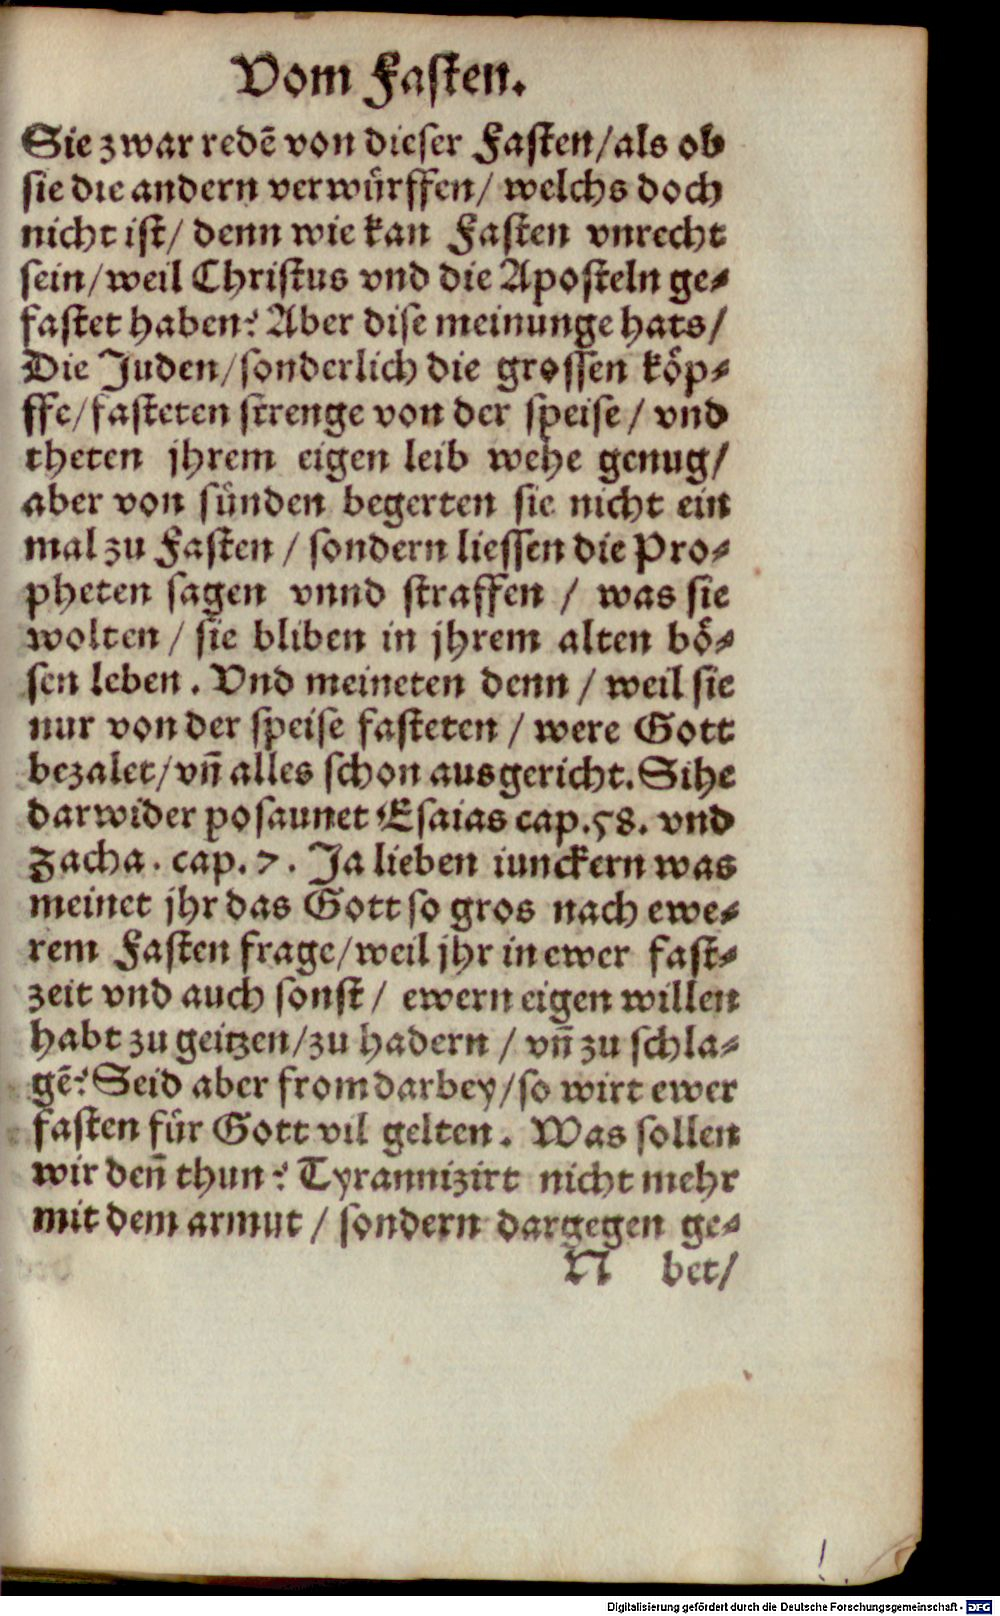 Vom Fasten.
Sie zwar redē von dieser Fasten/als ob
sie die andern verwürffen/ welchs doch
nicht ist/ denn wie kan Fasten vnrecht
sein/weil Christus vnd die Aposteln ge⸗
fastet haben? Aber dise meinunge hats/
Die Juden/sonderlich die grossen köp⸗
ffe/fasteten strenge von der speise/ vnd
theten jhrem eigen leib wehe genug/
aber von sünden begerten sie nicht ein
mal zu Fasten / sondern liessen die Pro⸗
pheten sagen vnnd straffen / was sie
wolten / sie bliben in jhrem alten bö⸗
sen leben. Vnd meineten denn / weil sie
nur von der speise fasteten / were Gott
bezalet/vñ alles schon ausgericht. Sihe
darwider posaunet Esaias cap.58. vnd
Zacha. cap. 7. Ja lieben iunckern was
meinet jhr das Gott so gros nach ewe⸗
rem Fasten frage/weil jhr in ewer fast⸗
zeit vnd auch sonst/ ewern eigen willen
habt zu geitzen/zu hadern / vñ zu schla⸗
gē? Seid aber from darbey/so wirt ewer
fasten für Gott vil gelten. Was sollen
wir deñ thun? Tyrannizirt nicht mehr
mit dem armut / sondern dargegen ge⸗
N bet/
Digitalisierung gefördert durch die Deutsche Forschungsgemeinschaft - DFG